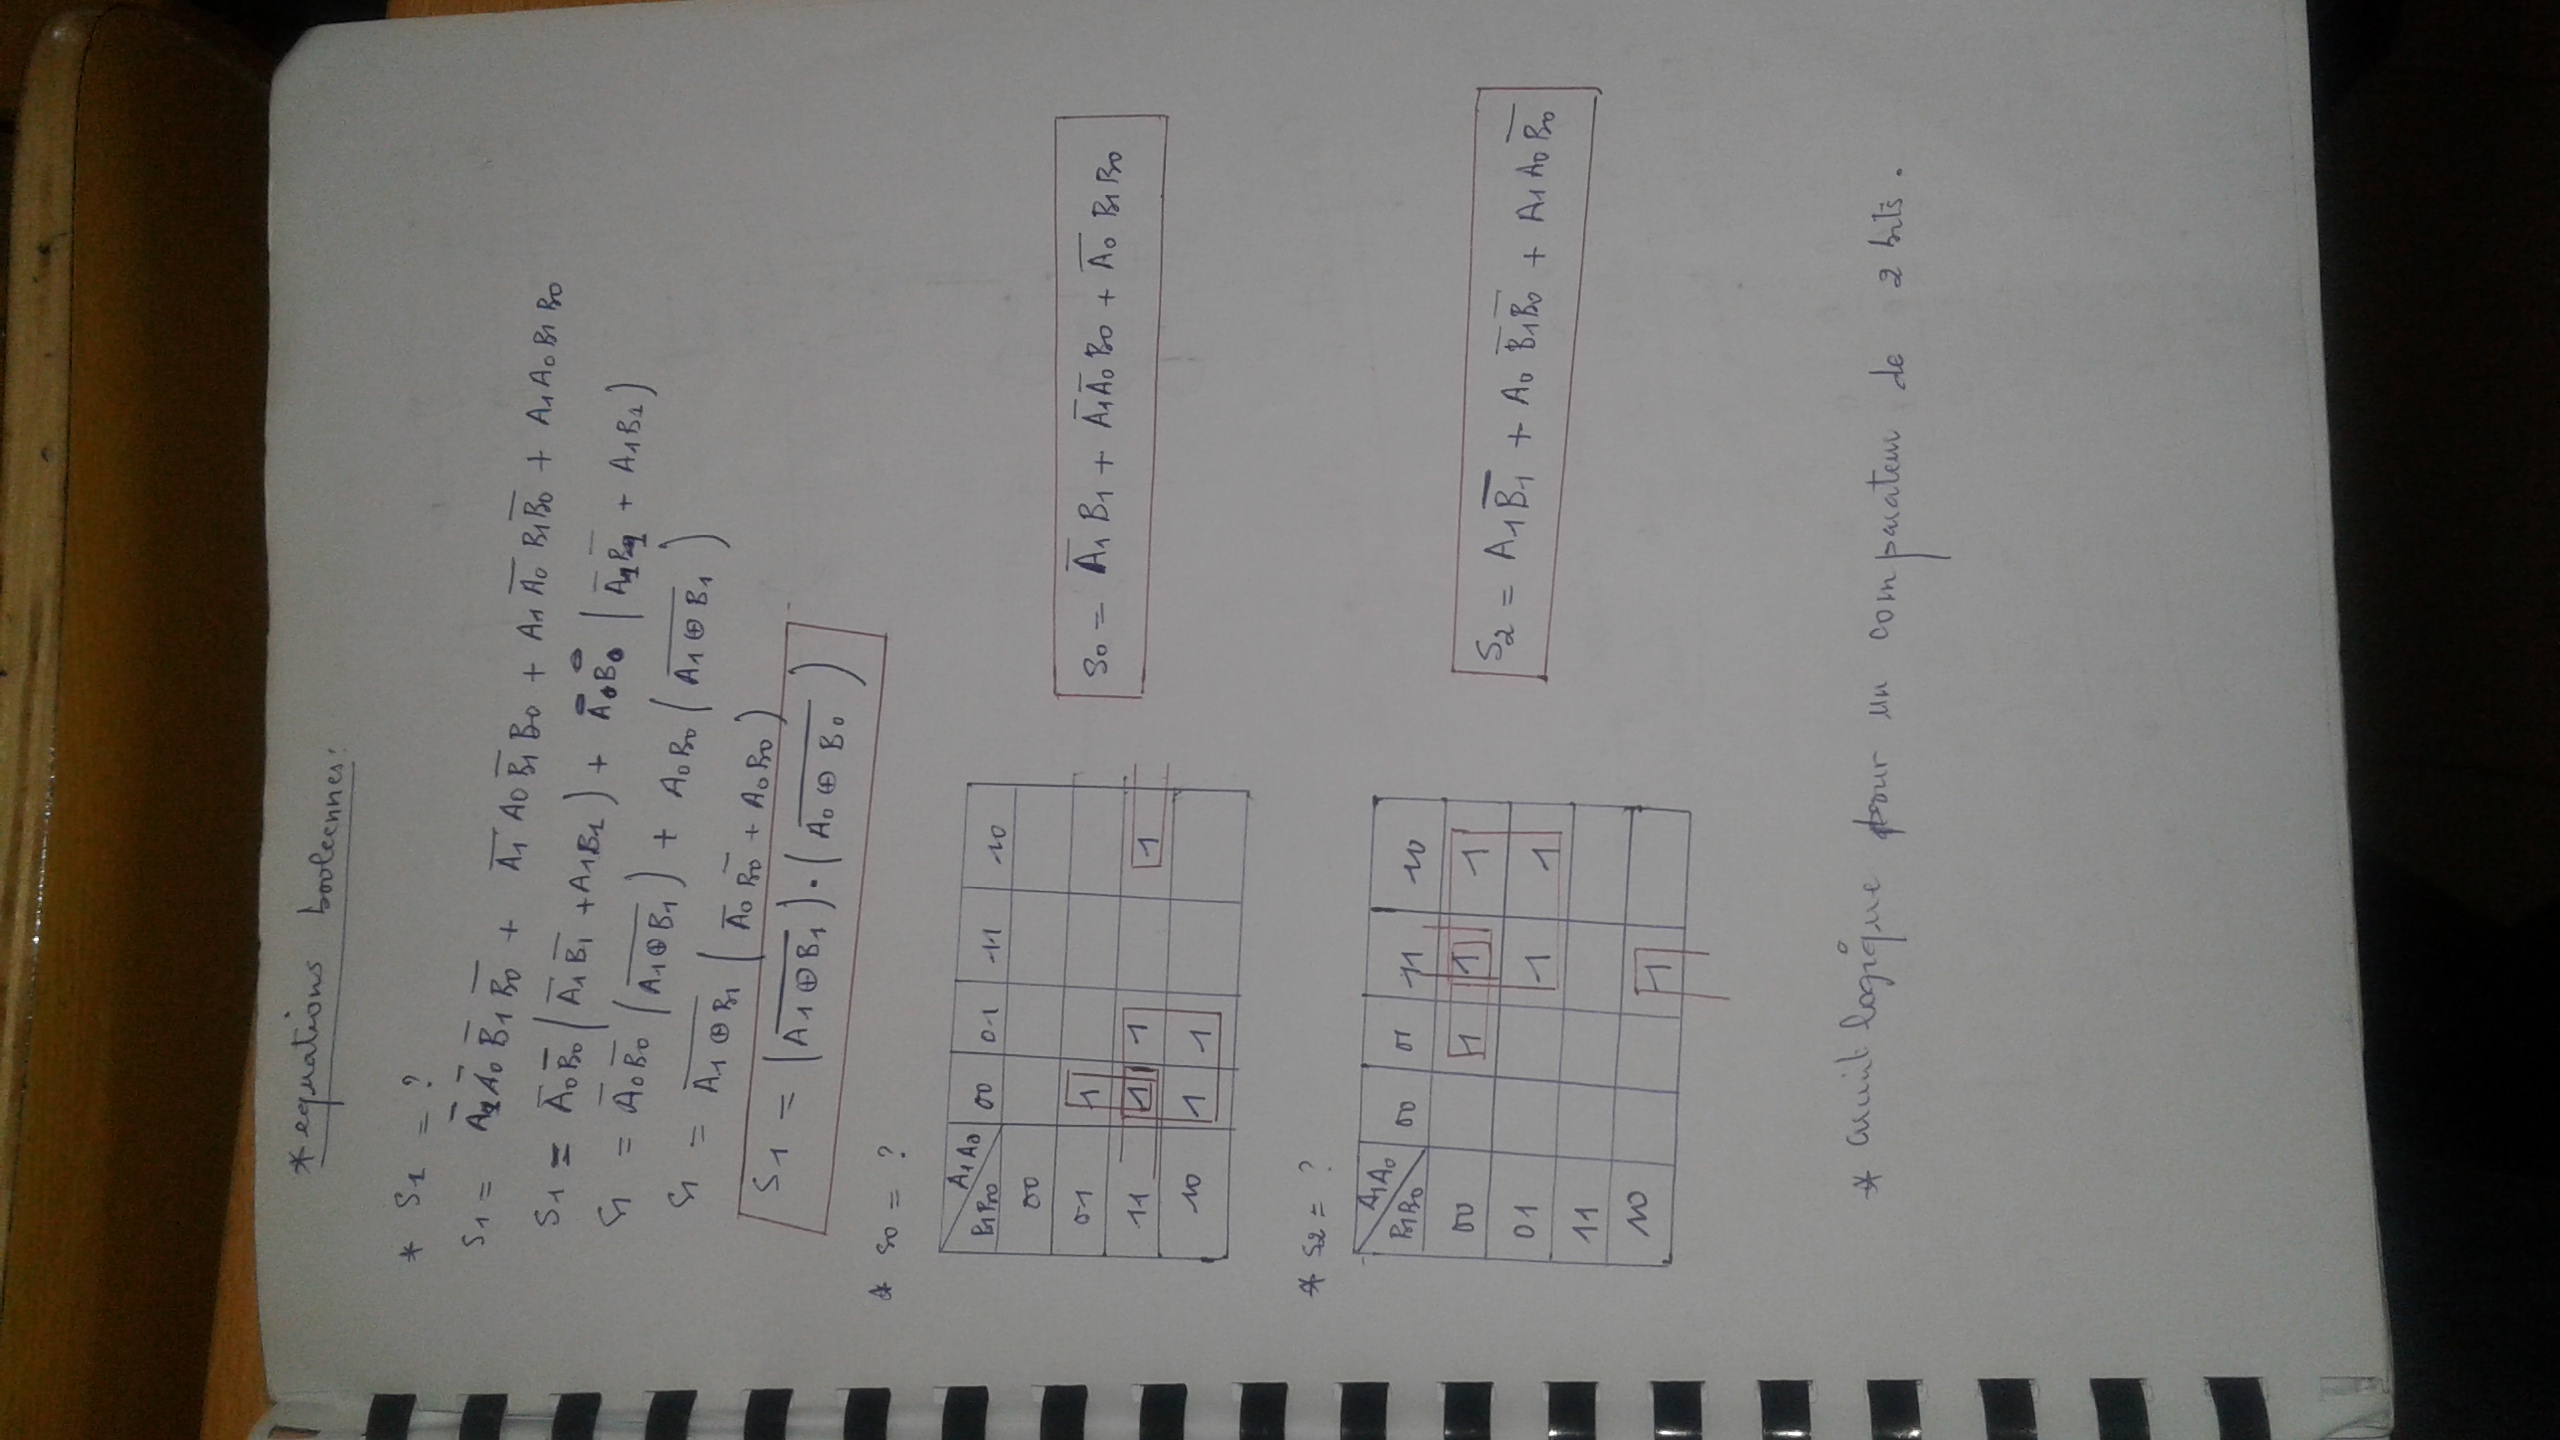 * equations booleennes:
* S1 = ?
S1 = A̅1 A̅0 B̅1 B̅0 + A̅1 A0 B̅1 B0 + A1 A̅0 B1 B̅0 + A1 A0 B1 B0
S1 = A̅0 B̅0 ( A̅1 B̅1 + A1 B1 ) + A0 B0 ( A̅1 B̅1 + A1 B1 )
S1 = A̅0 B̅0 ( \overline{A1 ⊕ B1} ) + A0 B0 ( \overline{A1 ⊕ B1} )
S1 = \overline{A1 ⊕ B1} ( A̅0 B̅0 + A0 B0 )
S1 = ( \overline{A1 ⊕ B1} ) . ( \overline{A0 ⊕ B0} )
* S0 = ?
A1 A0
B1 B0 00 01 11 10
00
01 1
11 1 1 1
10 1 1
S0 = A̅1 B1 + A̅1 A̅0 B0 + A̅0 B1 B0
* S2 = ?
A1 A0
B1 B0 00 01 11 10
00 1 1 1
01 1 1
11
10 1
S2 = A1 B̅1 + A0 B̅1 B̅0 + A1 A0 B̅0
* circuit logique pour un comparateur de 2 bits.